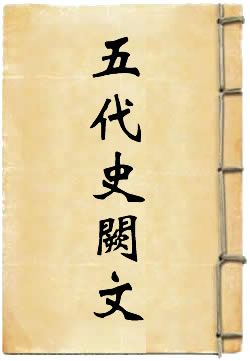 五代史闕文